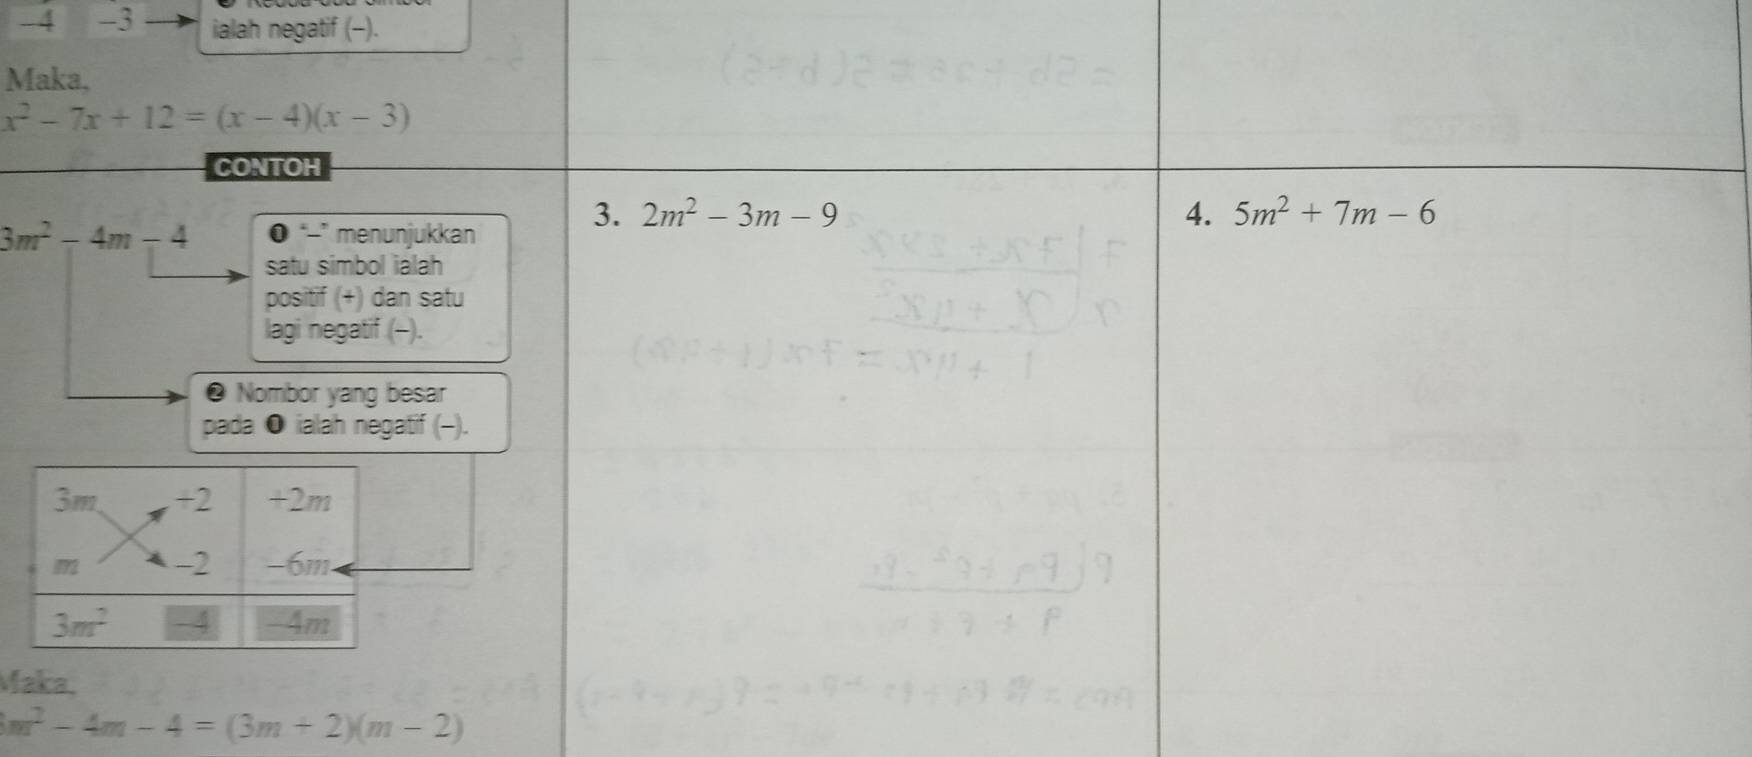 -4 -3 ialah negatif (–).
Maka,
x² – 7x + 12 = (x – 4)(x – 3)
CONTOH
3m² – 4m – 4
❶ "–" menunjukkan
satu simbol ialah
positif (+) dan satu
lagi negatif (–).
❷ Nombor yang besar
pada ❶ ialah negatif (–).
3m +2 +2m
m –2 –6m
3m² –4 –4m
Maka,
3m² – 4m – 4 = (3m + 2)(m – 2)
3. 2m² – 3m – 9
4. 5m² + 7m – 6